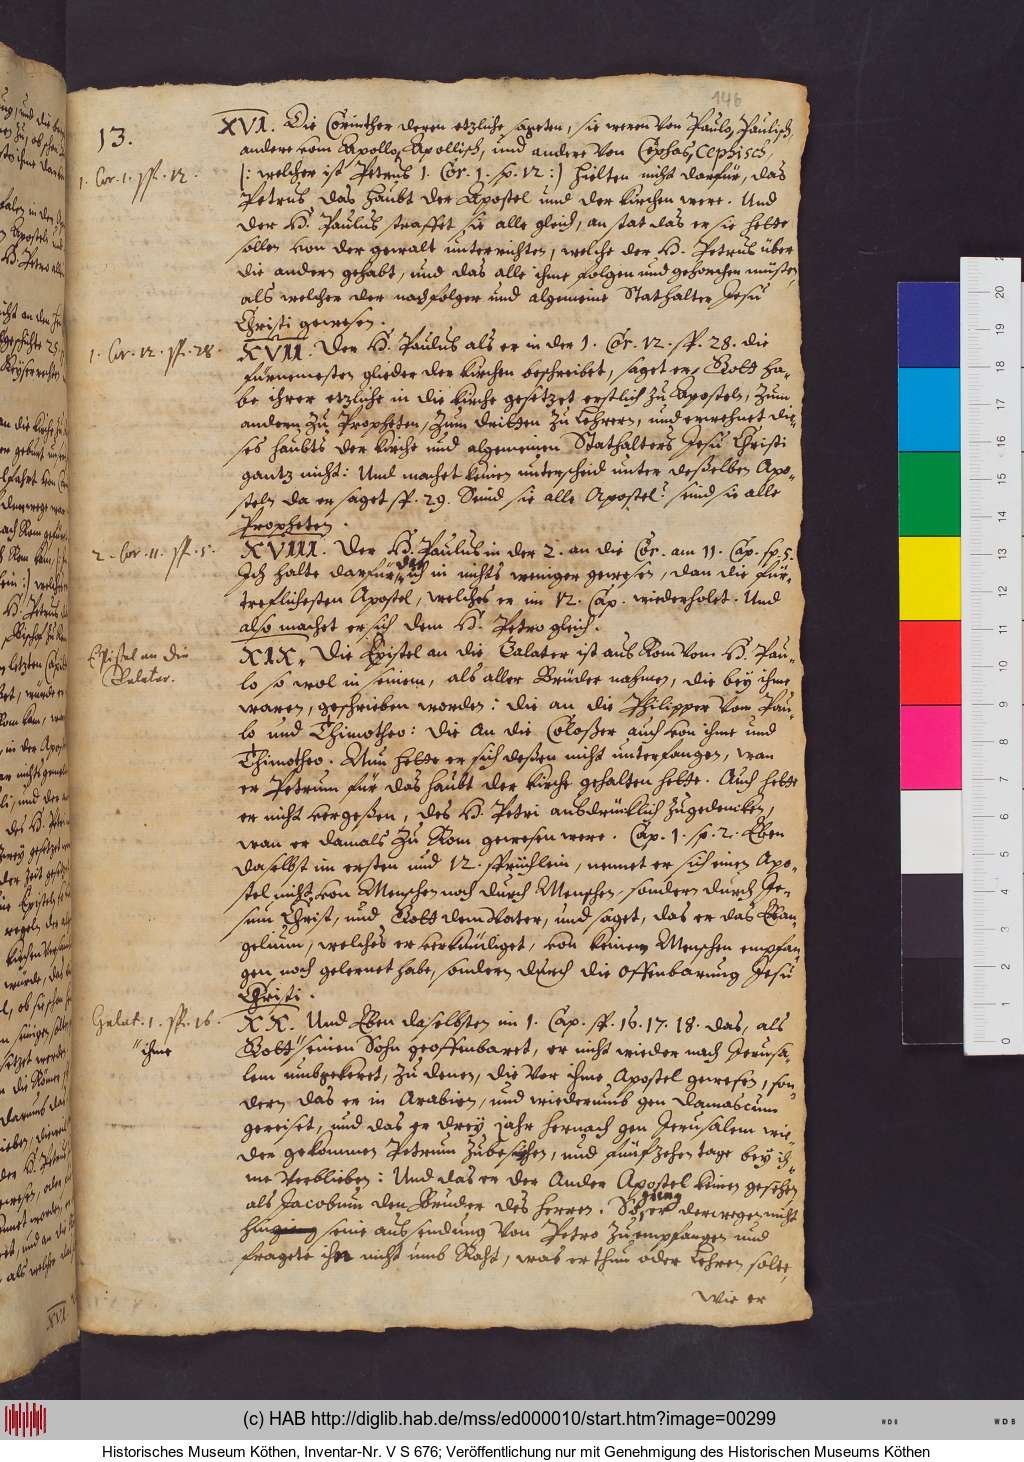 146
13.
XVI. Die Corinther deren etzliche sagten, sie weren von Paulo, Paulisch,
andere vom Apollo, Apollisch, und andere von Cephas, Cephisch,
1. Cor. 1. ꝟ. 12.
(: welcher ist Petrus 1. Cor. 1. ꝟ. 12 :) hielten nicht darfür, das
Petrus das Haubt der Apostel und der Kirchen were. Und
der H. Paulus straffet sie alle gleich, an stat das er sie hette
sollen von der gewalt unterrichten, welche der H. Petrus über
die andern gehabt, und das alle ihme folgen und gehorchen müsten,
als welcher der nachfolger und algemeine Stathalter Jesu
Christi gewesen.
1. Cor. 12. ꝟ. 28.
XVII. Der H. Paulus als er in der 1. Cor. 12. ꝟ. 28. die
fürnemesten glieder der Kirchen beschreibet, saget er, Gott ha-
be ihrer etzliche in die Kirche gesetzet erstlich zu Aposteln, Zum
andern zu Propheten, Zum dritten zu Lehrern, und erwehnet die-
ses haubts der Kirche und algemeinen Stathalters Jesu Christi
gantz nicht: Und machet keinen unterscheid unter deßelben Apo-
steln da er saget ꝟ. 29. Seind sie alle Apostel? seind sie alle
Propheten.
2. Cor. 11. ꝟ. 5.
XVIII. Der H. Paulus in der 2. an die Cor. am 11. Cap. ꝟ. 5.
Ich halte darfür, das ich in nichts weniger gewesen, dan die für-
treflichesten Apostel, welches er im 12. Cap. wiederholet. Und
also machet er sich dem H. Petro gleich.
Epistel an die
Galater.
XIX. Die Epistel an die Galater ist aus Rom vom H. Pau-
lo so wol in seinem, als aller Brüder nahmen, die bey ihme
waren, geschrieben worden: die an die Philipper vom Pau-
lo und Thimotheo: die an die Coloßer auch von ihme und
Thimotheo. Nun hette er sich deßen nicht unterfangen, wan
er Petrum für das haubt der Kirche gehalten hette. Auch hette
er nicht vergeßen, des H. Petri ausdrücklich zugedencken,
wan er damals zu Rom gewesen were. Cap. 1. ꝟ. 2. Eben
daselbst im ersten und 12. sprüchlein, nennet er sich einen Apo-
stel nicht von Menschen noch durch Menschen, sondern durch Je-
sum Christ, und Gott dem Vater, und saget, das er das Evan-
gelium, welches er verkündiget, von keinem Menschen empfan-
gen noch gelernet habe, sondern durch die offenbarung Jesu
Christi.
Galat. 1. ꝟ. 16.
XX. Und Eben daselbsten im 1. Cap. ꝟ. 16. 17. 18. das, als
" ihme
Gott " seinen Sohn geoffenbaret, er nicht wieder nach Jerusa-
lem umbgekeret, zu denen, die vor ihme Apostel gewesen, son-
dern das er in Arabien, und wiederumb gen Damascum
gereiset, und das er drey jahr hernach gen Jerusalem wie-
der gekommen Petrum zubesehen, und fünfzehen tage bey ih-
me verblieben: Und das er der Ander Apostel keinen gesehen
als Jacobum den Bruder des Herren. So gieng er derwegen nicht
hin seine aussendung von Petro zu empfangen und
fragete ihn nicht umb Raht, was er thun oder Lehren solte,
wie er
XVI.
(c) HAB http://diglib.hab.de/mss/ed000010/start.htm?image=00299
Historisches Museum Köthen, Inventar-Nr. V S 676; Veröffentlichung nur mit Genehmigung des Historischen Museums Köthen